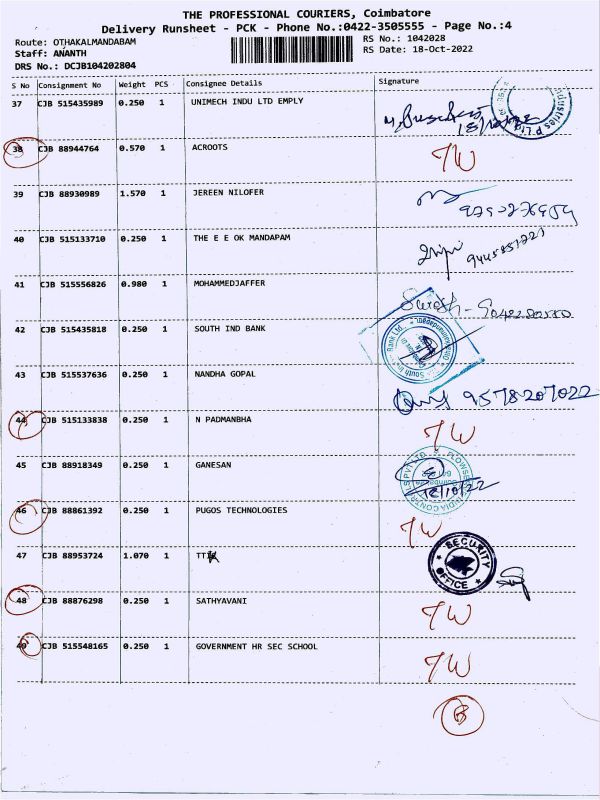 THE PROFESSIONAL COURIERS, Coimbatore
Delivery Runsheet - PCK - Phone No.:0422-3505555 - Page No.:4
Route: OTHAKALMANDABAM RS No.: 1042028
Staff: ANANTH RS Date: 18-Oct-2022
DRS No.: DCJB104202804
S No Consignment No Weight PCS Consignee Details Signature
37 CJB 515435989 0.250 1 UNIMECH INDU LTD EMPLY
38 CJB 88944764 0.570 1 ACROOTS TW
39 CJB 88930989 1.570 1 JEREEN NILOFER
40 CJB 515133710 0.250 1 THE E E OK MANDAPAM
41 CJB 515556826 0.980 1 MOHAMMEDJAFFER Suresh -
42 CJB 515435818 0.250 1 SOUTH IND BANK
43 CJB 515537636 0.250 1 NANDHA GOPAL 9578207022
44 CJB 515133838 0.250 1 N PADMANBHA TW
45 CJB 88918349 0.250 1 GANESAN 18/10/22
46 CJB 88861392 0.250 1 PUGOS TECHNOLOGIES TW
47 CJB 88953724 1.070 1 TTK SECURITY OFFICE
48 CJB 88876298 0.250 1 SATHYAVANI TW
49 CJB 515548165 0.250 1 GOVERNMENT HR SEC SCHOOL TW